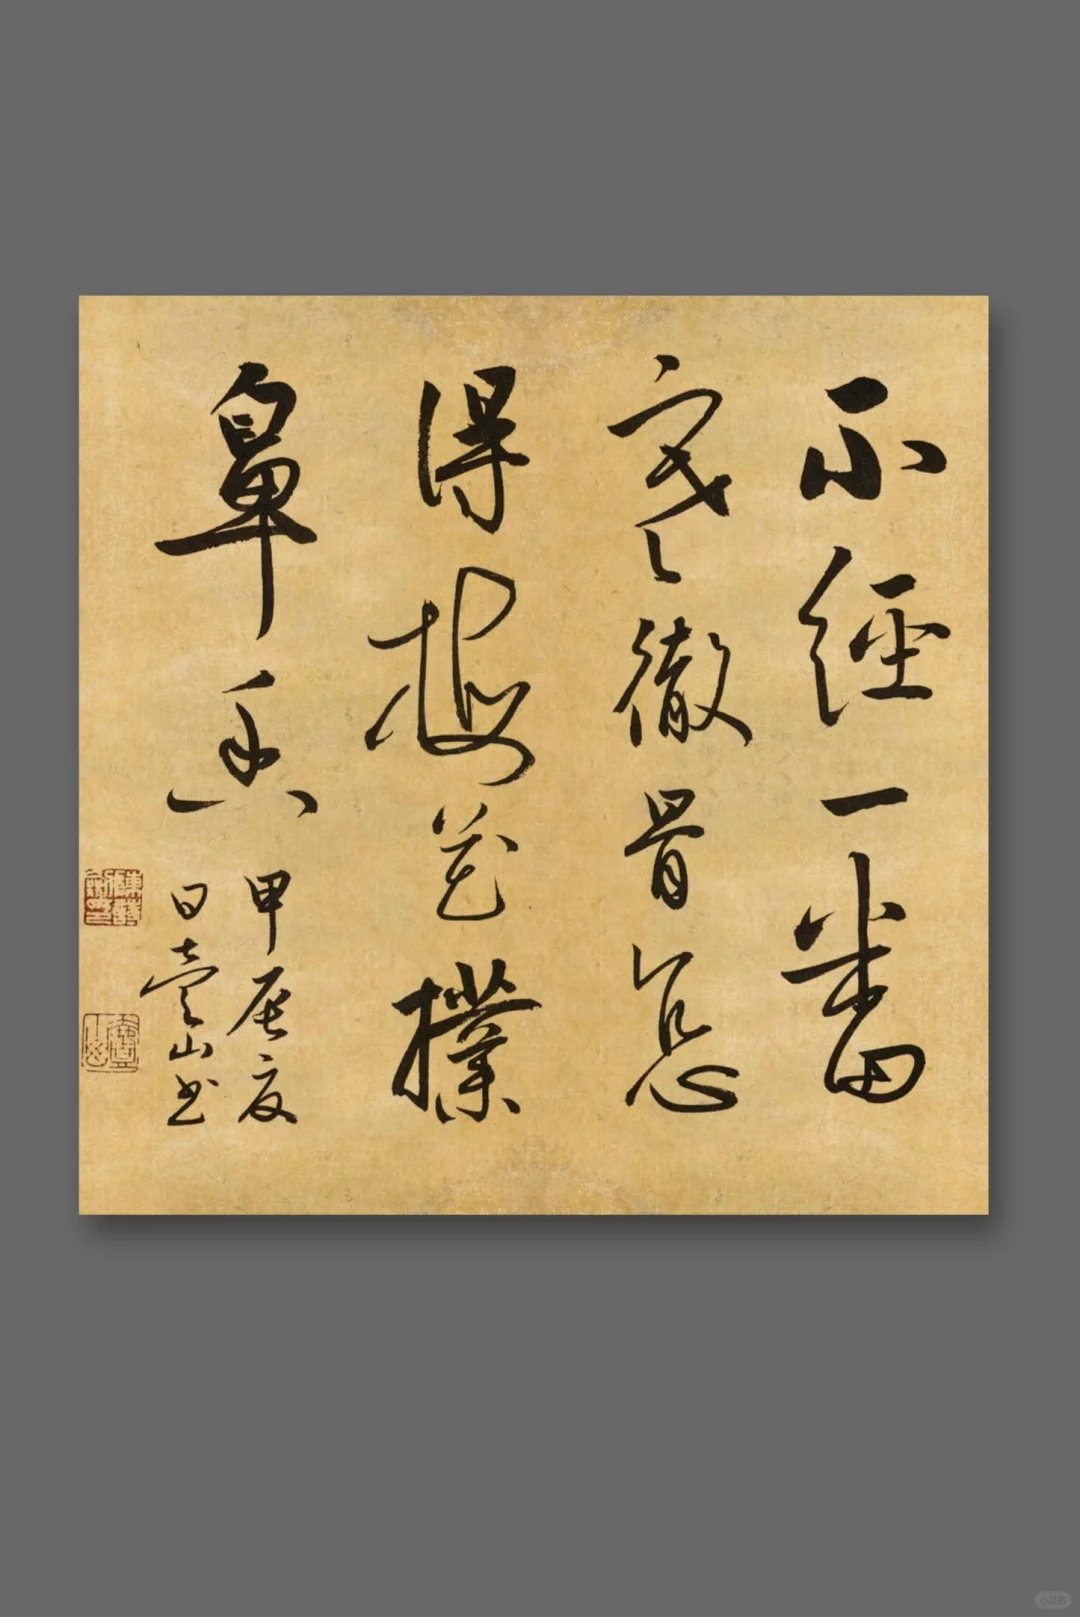 不經一番
寒徹骨怎
得梅花撲
鼻香
甲辰夏
日山书
小红书